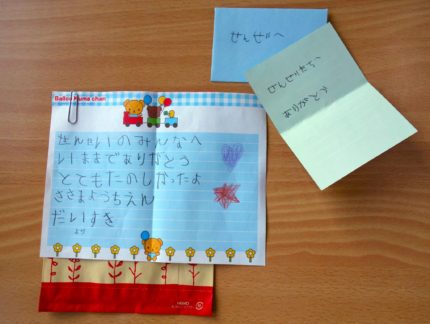 Balloo Kuma chan
せんせいのみんなへ
いままでありがとう
とてもたのしかったよ
ささまようちえん
だいすき
より
せんせいへ
ありがとう
MEMO